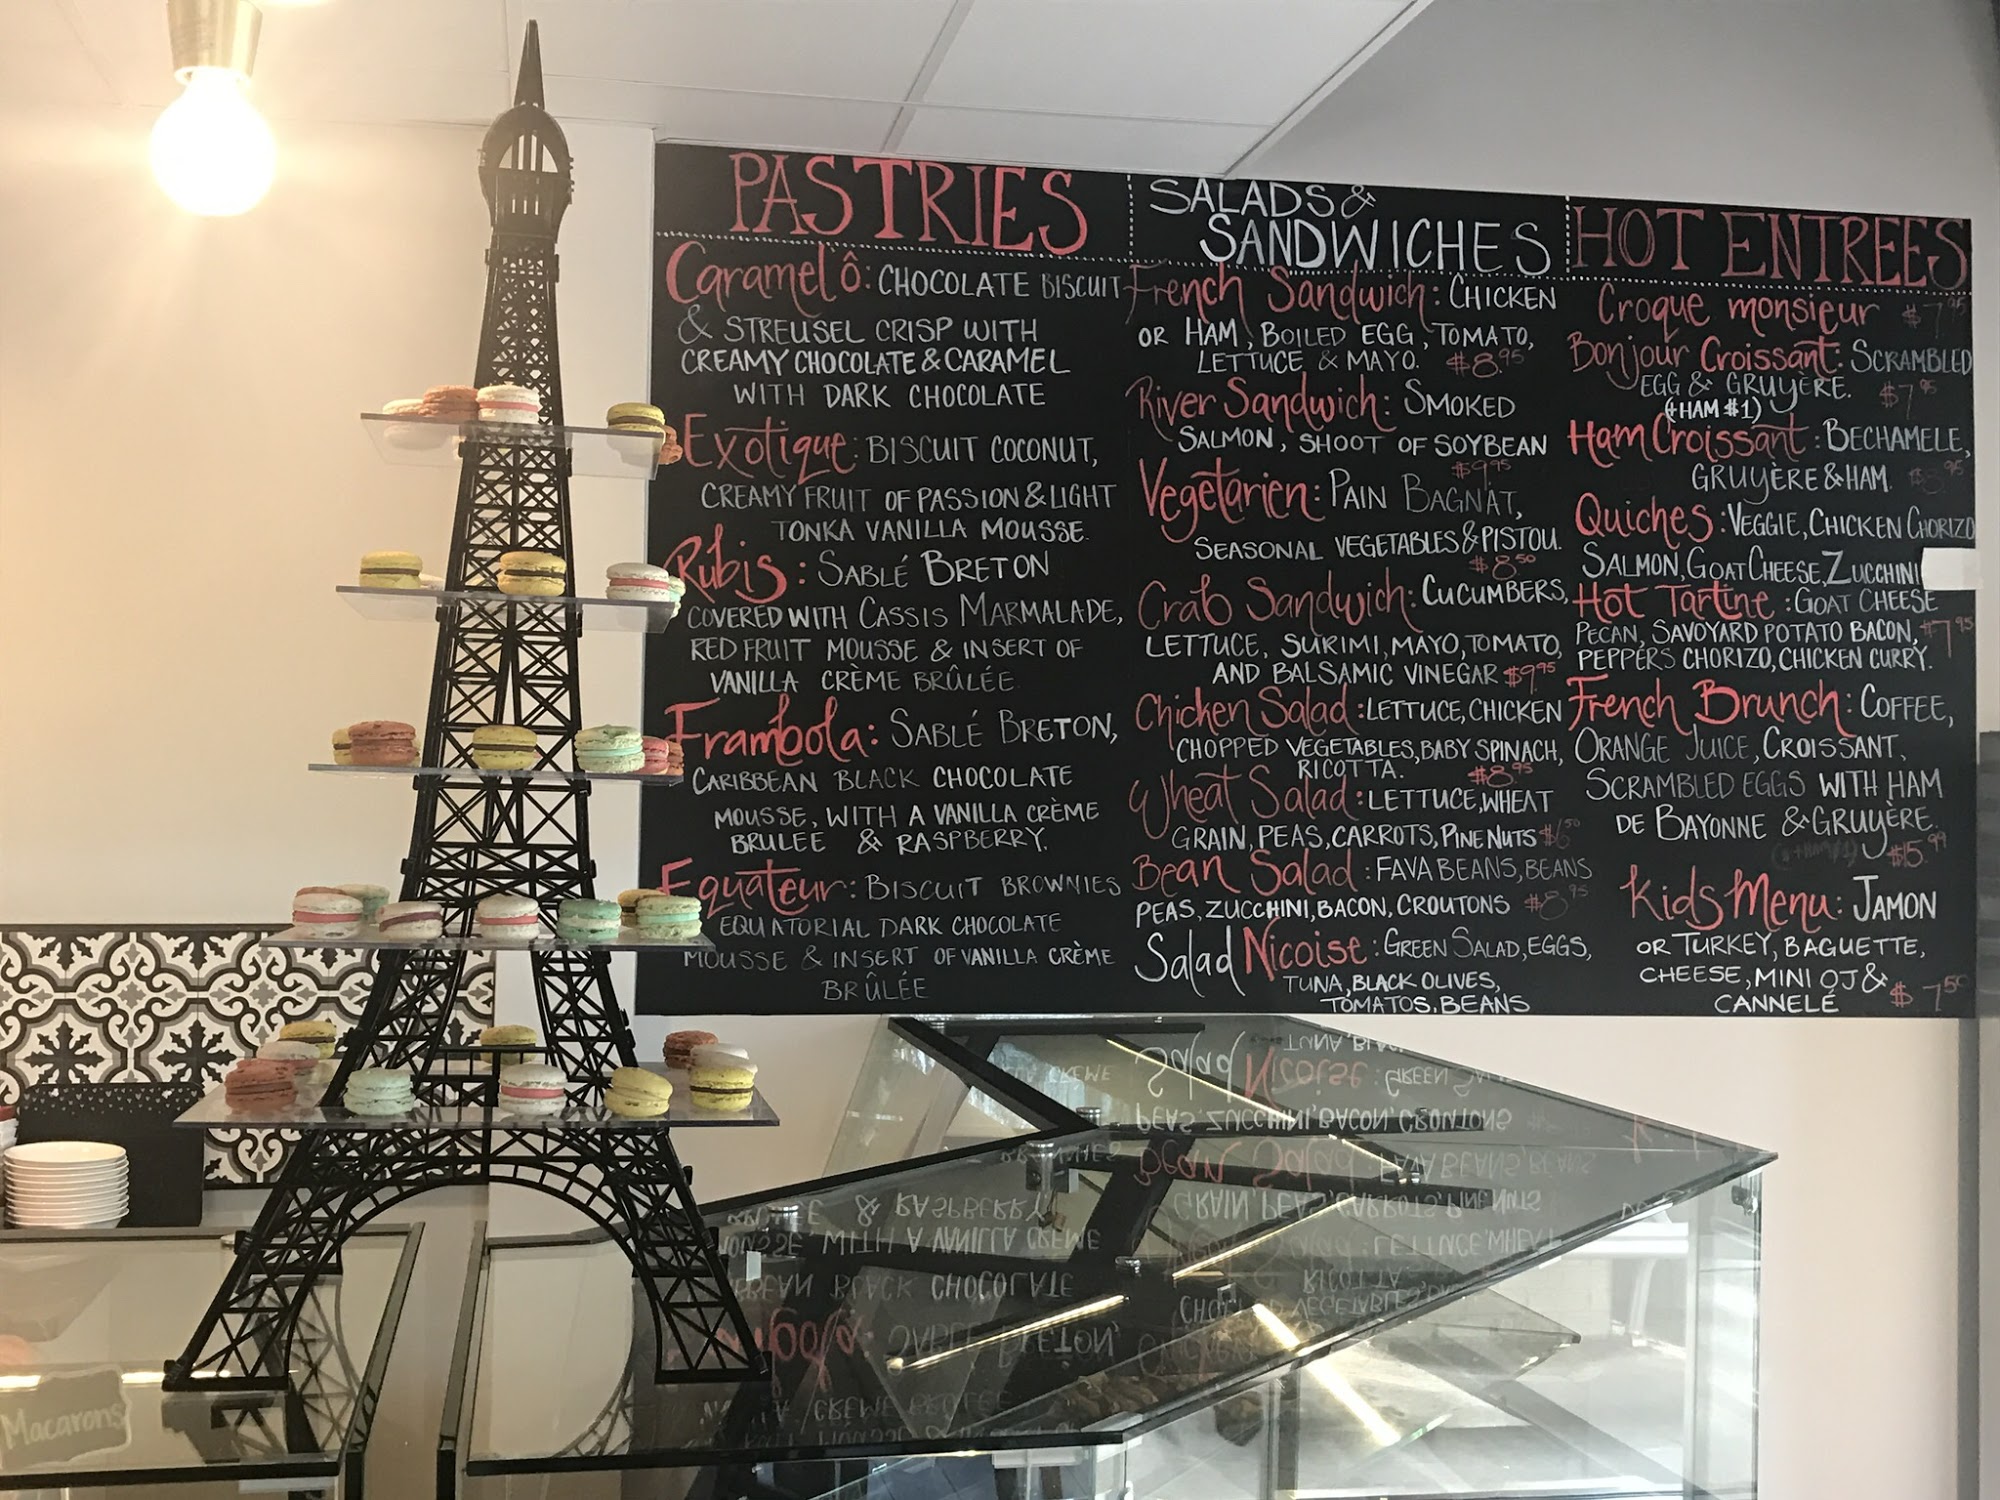 PASTRIES
Caramel ô: CHOCOLATE BISCUIT
& STREUSEL CRISP WITH
CREAMY CHOCOLATE & CARAMEL
WITH DARK CHOCOLATE
Exotique: BISCUIT COCONUT,
CREAMY FRUIT OF PASSION & LIGHT
TONKA VANILLA MOUSSE.
Rubis: SABLÉ BRETON
COVERED WITH CASSIS MARMALADE,
RED FRUIT MOUSSE & INSERT OF
VANILLA CRÈME BRÛLÉE
Frambola: SABLÉ BRETON,
CARIBBEAN BLACK CHOCOLATE
MOUSSE, WITH A VANILLA CRÈME
BRULEE & RASPBERRY.
Equateur: BISCUIT BROWNIES
EQUATORIAL DARK CHOCOLATE
MOUSSE & INSERT OF VANILLA CRÈME
BRÛLÉE
SALADS &
SANDWICHES
French Sandwich: CHICKEN
OR HAM, BOILED EGG, TOMATO,
LETTUCE & MAYO. $8.95
River Sandwich: SMOKED
SALMON, SHOOT OF SOYBEAN
$9.95
Vegetarien: PAIN BAGNAT,
SEASONAL VEGETABLES & PISTOU.
$8.50
Crab Sandwich: CUCUMBERS,
LETTUCE, SURIMI, MAYO, TOMATO,
AND BALSAMIC VINEGAR $9.95
Chicken Salad: LETTUCE, CHICKEN
CHOPPED VEGETABLES, BABY SPINACH,
RICOTTA. $8.95
Wheat Salad: LETTUCE, WHEAT
GRAIN, PEAS, CARROTS, PINE NUTS $6.50
Bean Salad: FAVA BEANS, BEANS
PEAS, ZUCCHINI, BACON, CROUTONS $8.95
Salad Nicoise: GREEN SALAD, EGGS,
TUNA, BLACK OLIVES,
TOMATOS, BEANS
HOT ENTREES
Croque monsieur $7.95
Bonjour Croissant: SCRAMBLED
EGG & GRUYÈRE. $7.95
(+HAM $1)
Ham Croissant: BECHAMELE,
GRUYÈRE & HAM.
Quiches: VEGGIE, CHICKEN CHORIZO
SALMON, GOAT CHEESE, ZUCCHINI
Hot Tartine: GOAT CHEESE
PECAN, SAVOYARD POTATO BACON, $7.95
PEPPERS CHORIZO, CHICKEN CURRY.
French Brunch: COFFEE,
ORANGE JUICE, CROISSANT,
SCRAMBLED EGGS WITH HAM
DE BAYONNE & GRUYÈRE.
$15.99
Kids Menu: JAMON
OR TURKEY, BAGUETTE,
CHEESE, MINI OJ &
CANNELÉ $7.50
Macarons